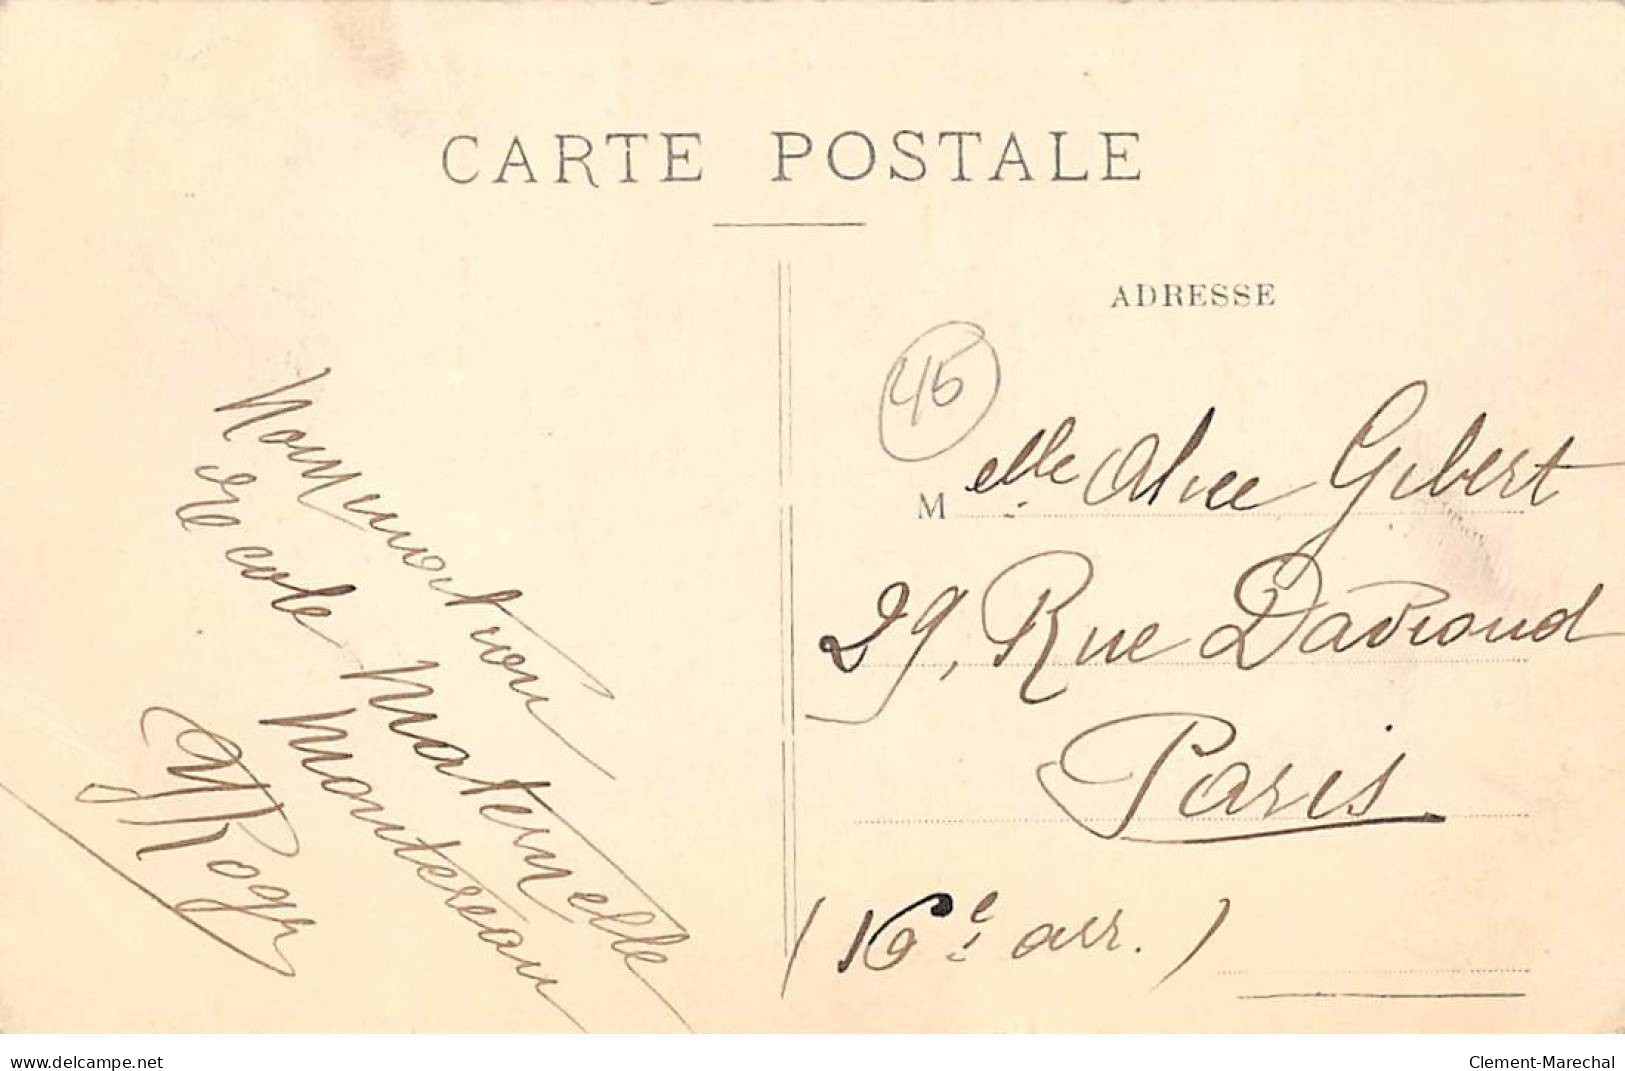 CARTE POSTALE
ADRESSE
46
Melle Alice Gibert
29, Rue Davioud
Paris
(16e arr.)
Nomination
Ecole Maternelle
Montereau
Roger
www.delcampe.net
Clement-Marechal